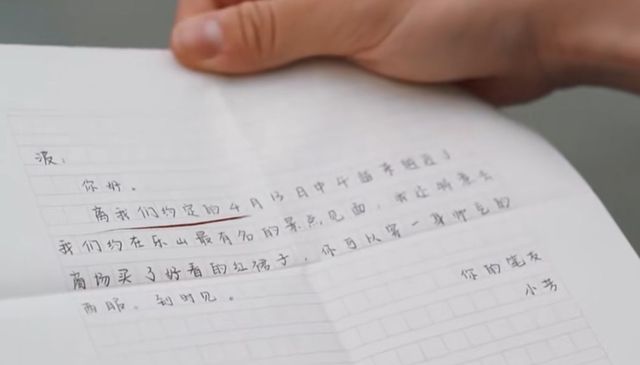 波：
你好。
离我们约定的4月13日中午越来越近了
我们约在乐山最有名的景点见面，我还特意去
商场买了好看的红裙子，你可以穿一身帅气的
西服。到时见。
你的笔友
小芳